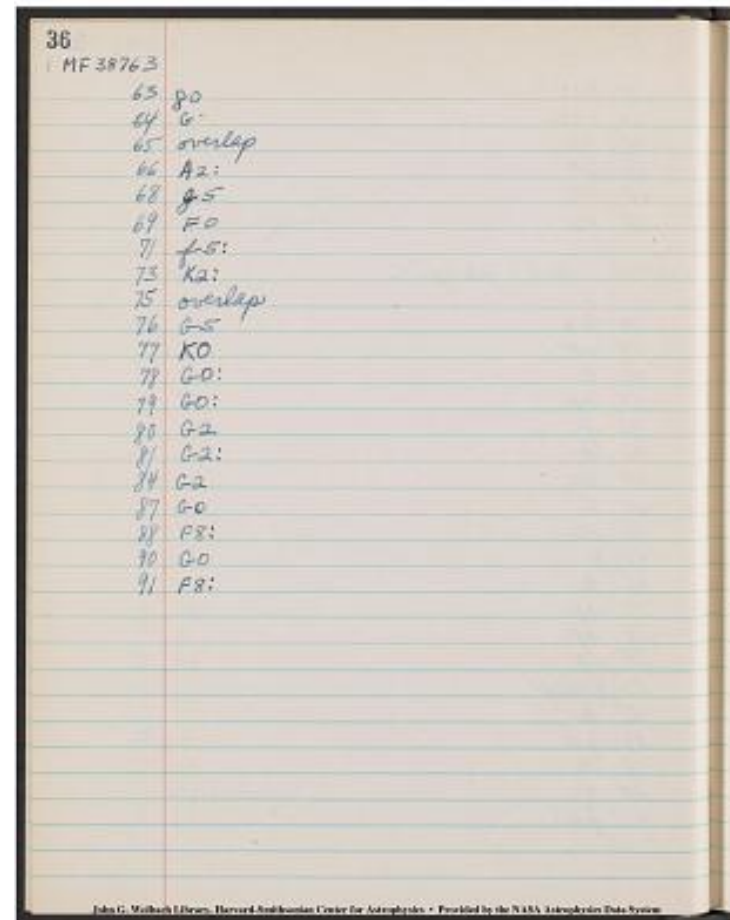 36
MF 38763
63 g0
64 G:
65 overlap
66 A2:
68 g5
69 F0
71 f5:
73 K2:
75 overlap
76 G5
77 K0
78 G0:
79 G0:
80 G2
81 G2:
84 G2
87 G0
88 F8:
90 G0
91 F8:
John G. Wolbach Library, Harvard-Smithsonian Center for Astrophysics • Provided by the NASA Astrophysics Data System